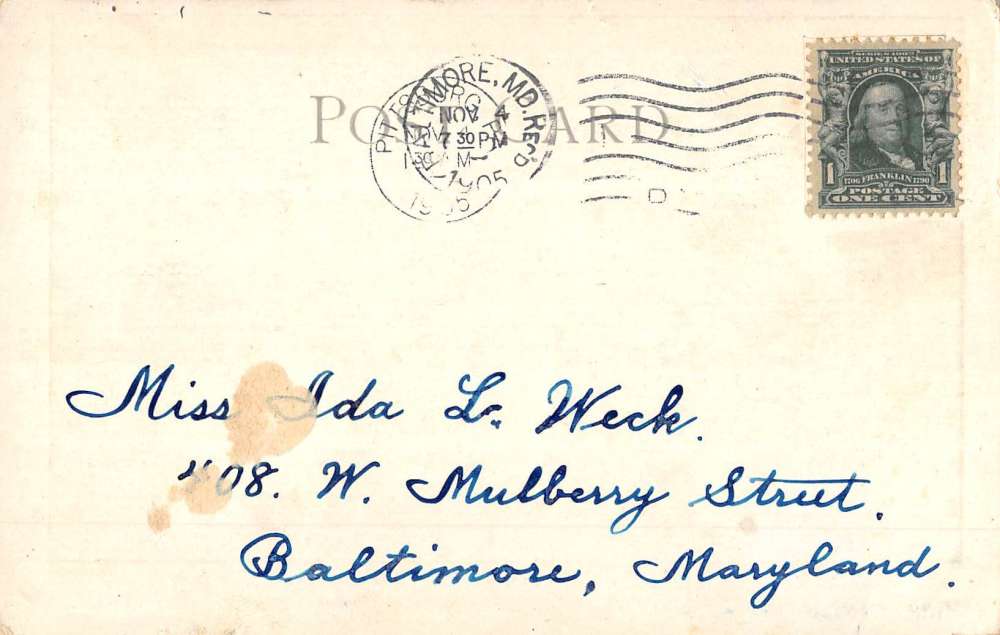 POST CARD
BALTIMORE, MD. REC'D
NOV 4
7 30 PM
1905
PITTSBURG
1 30
M
1905
D
SERIES 1902
UNITED STATES OF
AMERICA
1 1706 FRANKLIN 1790 1
POSTAGE
ONE CENT
Miss Ida L. Weck.
408. W. Mulberry Street.
Baltimore, Maryland.